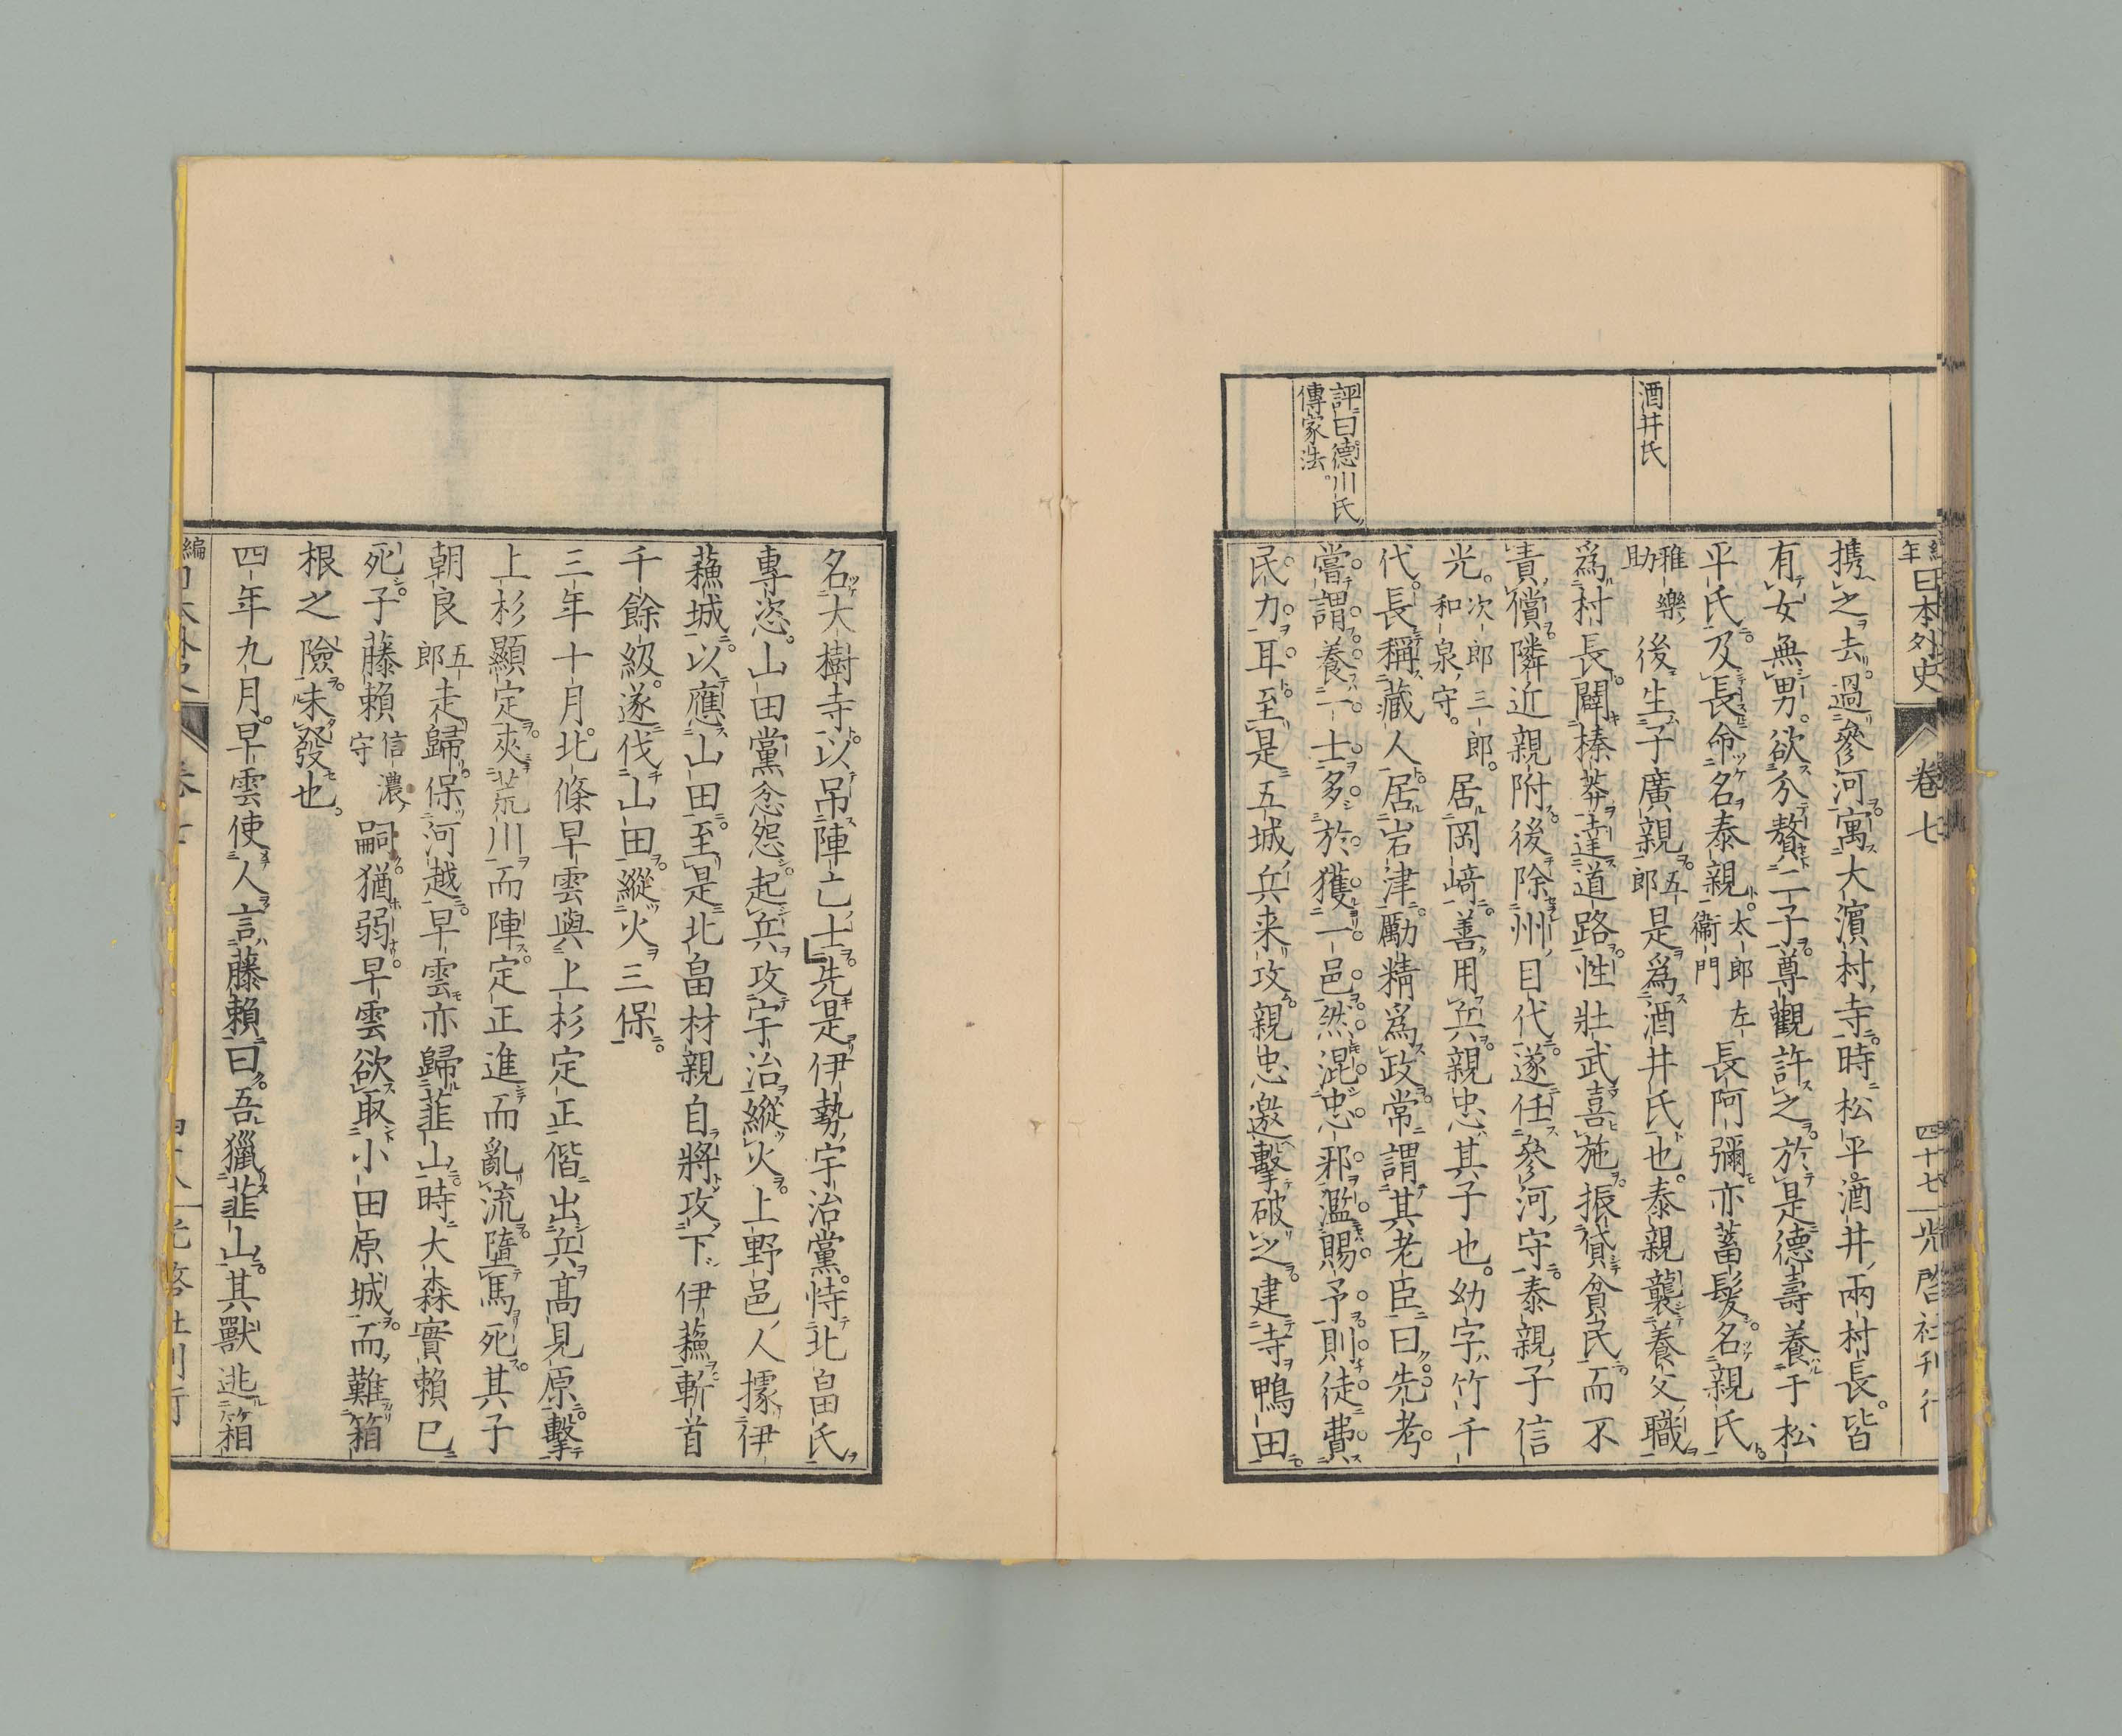 年 日本外史 卷七 四十七 光啓社刊行
酒井氏
評曰德川氏
傳家法。
携之去。過參河寓大濱村寺。時松平酒井兩村長。皆
有女無男。欲分贅二子。尊觀許之。於是德壽養于松
平氏。及長命名泰親。太郎左衞門長阿彌亦蓄髮。名親氏
雅樂助後生子廣親。五郎是爲酒井氏也。泰親襲養父職
爲村長。闢榛莽達道路。性壯武喜施。振貸貧民。而不
責償。隣近親附。後除州目代。遂任參河守。泰親子信
光。次郎三郎。和泉守。居岡﨑。善用兵。親忠其子也。幼字竹千
代。長稱藏人。居岩津。勵精爲政。常謂其老臣曰。先考
嘗謂。養一士多於獲一邑。然混忠邪濫賜予。則徒費
民力耳。至是五城兵来攻。親忠邀擊破之。建寺鴨田。
名大樹寺。以吊陣亡士。」先是伊勢宇治黨。恃北畠氏
專恣。山田黨忿怨。起兵攻宇治。縱火。上野邑人據伊
蘓城。以應山田。至是北畠材親自將攻下伊蘓。斬首
千餘級。遂伐山田。縱火三保。
三年十月。北條早雲與上杉定正偕出兵髙見原。擊
上杉顯定。夾荒川而陣。定正進而亂流。墮馬死。其子
朝良五郎走歸保河越。早雲亦歸韮山。時大森實賴已
死。子藤賴信濃守嗣。猶弱。早雲欲取小田原城。而難箱
根之險。味發也。
四年九月。早雲使人言藤賴曰。吾獵韮山。其獸逃箱
編